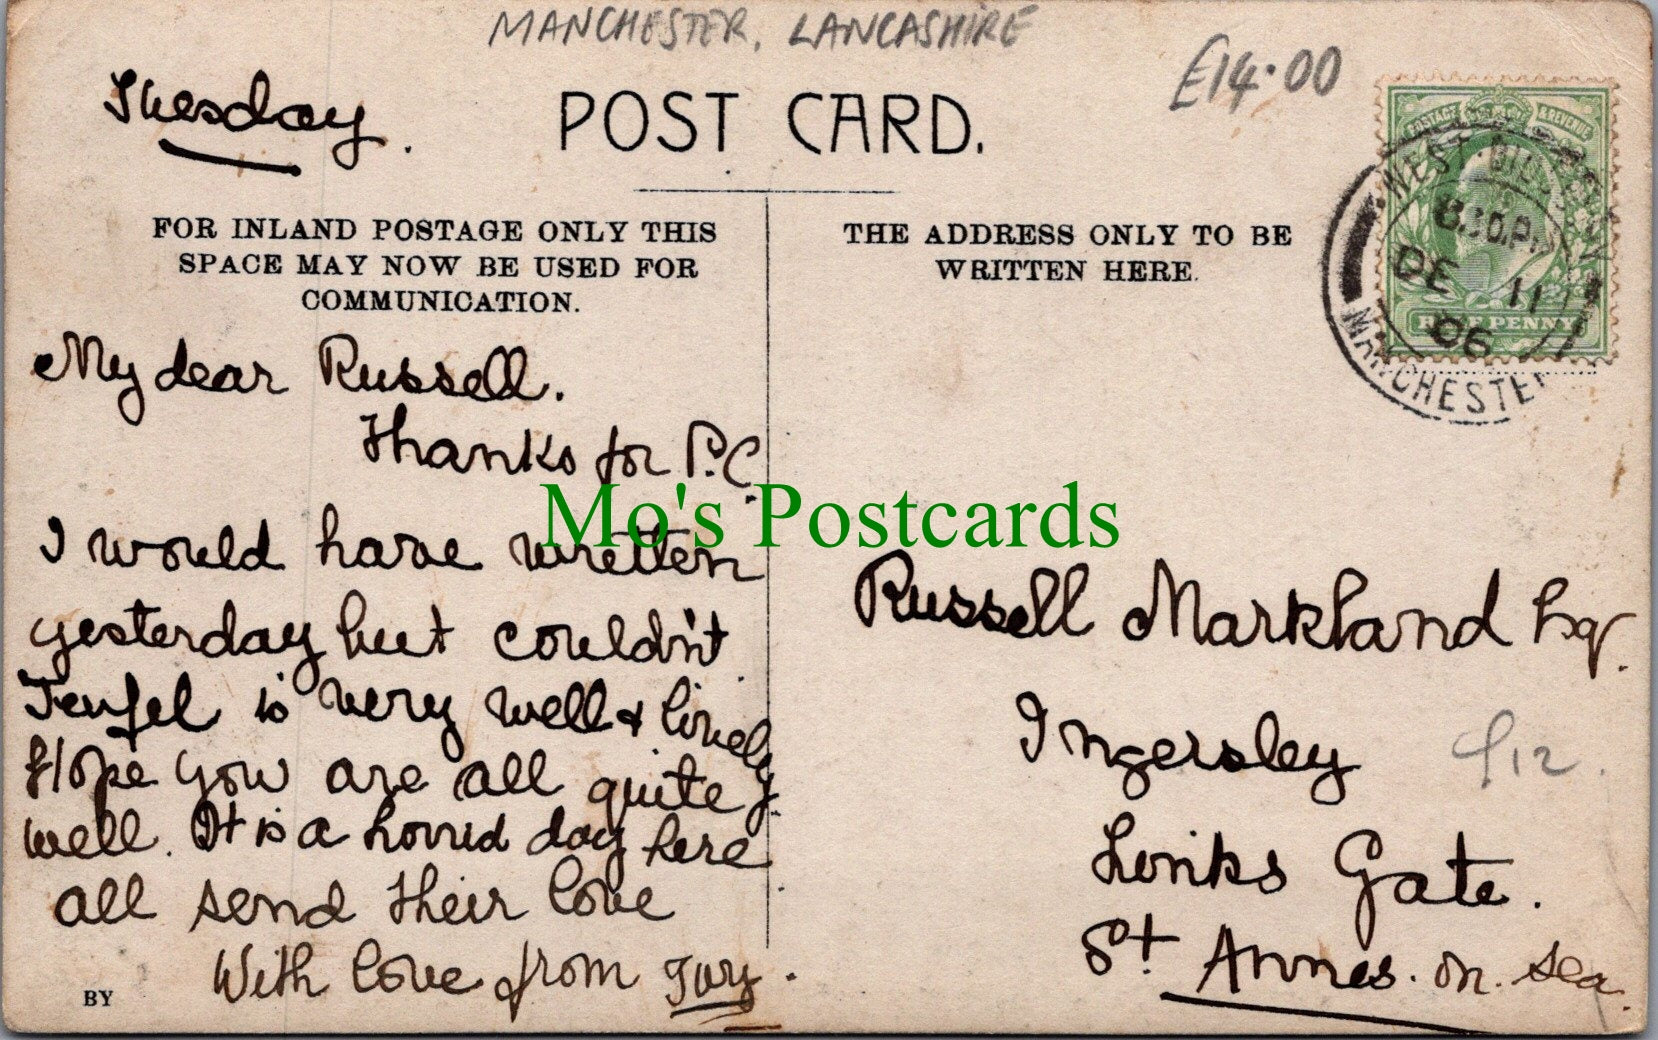 MANCHESTER, LANCASHIRE
£14.00
Tuesday.
POST CARD.
FOR INLAND POSTAGE ONLY THIS
SPACE MAY NOW BE USED FOR
COMMUNICATION.
THE ADDRESS ONLY TO BE
WRITTEN HERE.
POSTAGE & REVENUE
WEST DIDSBURY
8.30.PM
DE 11
06
HALFPENNY
MANCHESTER
My dear Russell.
Thanks for P.C.
I would have written
yesterday but couldn't
Teufel is very well & lively
Hope you are all quite
well. It is a horrid day here
all send their love
With love from
BY
Mo's Postcards
Russell Markland Esq.
Ingersley
Links Gate.
St Annes. on. Sea.